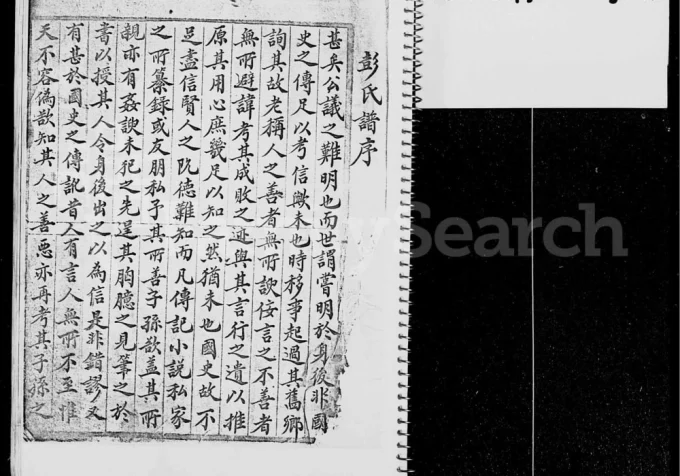 彭氏譜序
甚矣公議之難明也而世謂嘗明於身後非國
史之傳足以考信歟未也時移事起過其舊鄉
詢其故老稱人之善者無所諛佞言之不善者
無所避諱考其成敗之迹與其言行之遺以推
原其用心庶幾足以知之然猶未也國史故不
足盡信賢人之阨德難知而凡傳記小說私家
之所纂錄或友朋私予其所善子孫欲蓋其所
親亦有姦諛未犯之先逞其胸臆之見筆之於
書以授其人令身後出之以為信是非錯謬又
有甚於國史之傳訛昔人有言人無所不至惟
天不容偽欲知其人之善惡亦再考其子孫之
Search